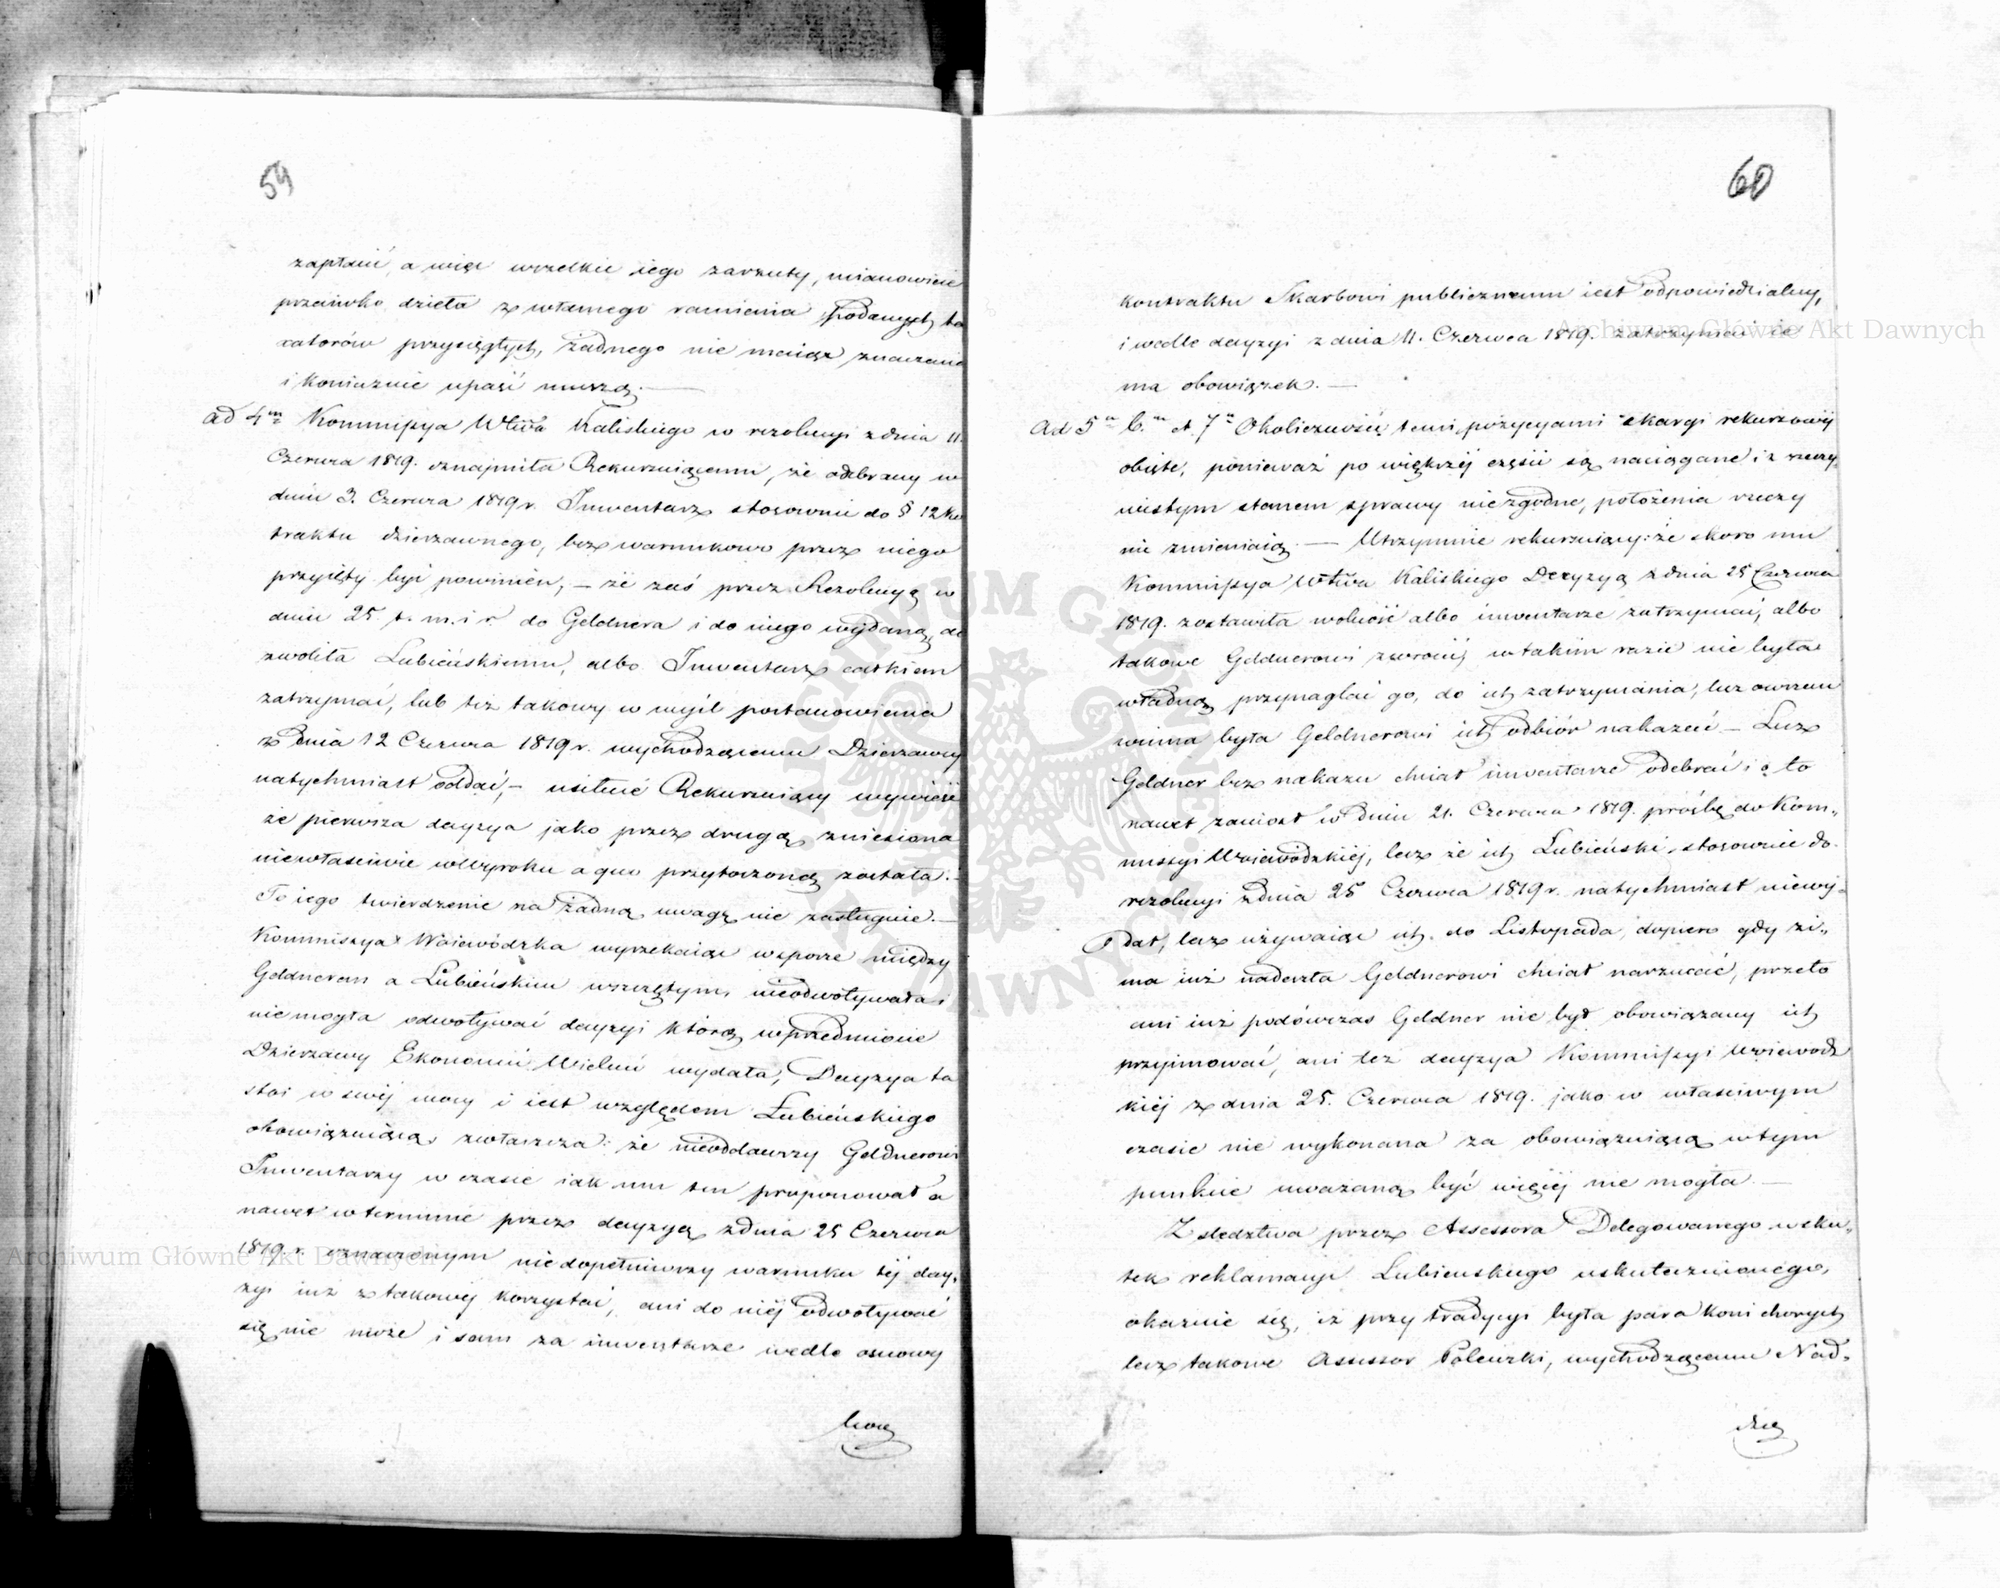 59
zapłacić, a więc wszelkie iego zarzuty, mianowicie
przeciwko dzieła z własnego ramienia podanych ta
xatorów przysięgłych, żadnego nie maiąc znaczenia
i koniecznie upaść muszą. —
ad 4m Kommissya Wtwa Kaliskiego w rezolucyi z dnia 11
Czerwca 1819. oznajmiła Rekurzuiącemu, że odebrany w
dniu 3. Czerwca 1819 r. Inwentarz stosownie do § 12 kon
traktu dzierzawnego, bezwarunkowo przez niego
przyięty być powinien, — że zaś przez Rezolucyą w
dniu 25 t. m. i r. do Geldnera i do niego wydaną, do
zwoliła Lubieńskiemu, albo Inwentarz całkiem
zatrzymać, lub też takowy w myśl postanowienia
z dnia 12 Czerwca 1819 r. wychodzącemu Dzierzawcy
natychmiast oddać, — usiłuie Rekurzuiący wywieść
że pierwsza decyzya jako przez drugą zniesiona
niewłaściwie w Wyroku a quo przytoczoną została. —
To iego twierdzenie na żadną uwagę nie zasługuie. —
Kommissya Woiewódzka wyrzekaiąc w sporze między
Geldnerem a Lubieńskim wszczętym, nieodwoływała i
nie mogła odwoływać decyzyi którą w przedmiocie
Dzierzawy Ekonomii Wieluń wydała, Decyzya ta
stoi w swéj mocy i iest względem Łubieńskiego
obowiązuiącą, zwłaszcza: że nieoddawszy Geldnerowi
Inwentarzy w czasie iak mu ten proponował a
nawet w terminie przez decyzyą z dnia 25 Czerwca
1819 r. oznaczonym niedopełniwszy warunku téj decy„
zyi iuż z takowéj korzystać, ani do niéj odwoływać
się nie może i sam za inwentarze wedle osnowy
60
kontraktu Skarbowi publicznemu iest odpowiedzialny,
i wedle decyzyi z dnia 11. Czerwca 1819. zatrzymać ie
ma obowiązek. —
Ad 5m 6.m et 7m Okoliczności temi pozycyami skargi rekursowéj
obięte, ponieważ po większéj części są naciągane i z rzeczy„
wistym stanem sprawy niezgodne, położenia rzeczy
nie zmieniaią. — Utrzymuie rekurzuiący: że skoro mu
Kommissya Wtwa Kaliskiego Decyzyą z dnia 25 Czerwca
1819. zostawiła wolność albo inwentarze zatrzymać, albo
takowe Geldnerowi zwrocić, w takim razie nie była
władną przynaglać go, do ich zatrzymania, lecz owszem
winna była Geldnerowi ich odbiór nakazać — Lecz
Geldner bez nakazu chciał inwentarze odebrać i o to
nawet zaniosł w dniu 21. Czerwca 1819. prośbę do Kom„
missyi Woiewódzkiéj, lecz że ich Lubieński stosownie do
rezolucyi z dnia 25 Czerwca 1819 r. natychmiast niewy„
dał, lecz używaiąc ich do Listopada, dopiero gdy zi„
ma iuż nadeszła Geldnerowi chciał narzucać, przeto
ani iuż podówczas Geldner nie był obowiązany ich
przyimować, ani też decyzya Kommissyi Woiewódz
kiéj z dnia 25. Czerwca 1819. jako w właściwym
czasie nie wykonana za obowiązuiącą w tym
punkcie uważaną być więcéj nie mogła. —
Z śledztwa przez Assessora Delegowanego w sku„
tek reklamacyi Lubieńskiego uskutecznionego,
okazuie się, iż przy tradycyi była para koni chorych
lecz takowe Assessor Poleuzki, wychodzącemu Nad„
dzie